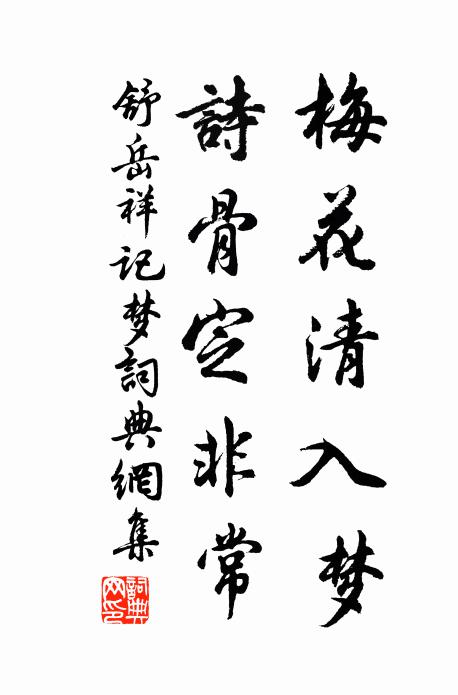 梅花清入梦
詩骨定非常
舒岳祥记梦詞典網集
詞典网印